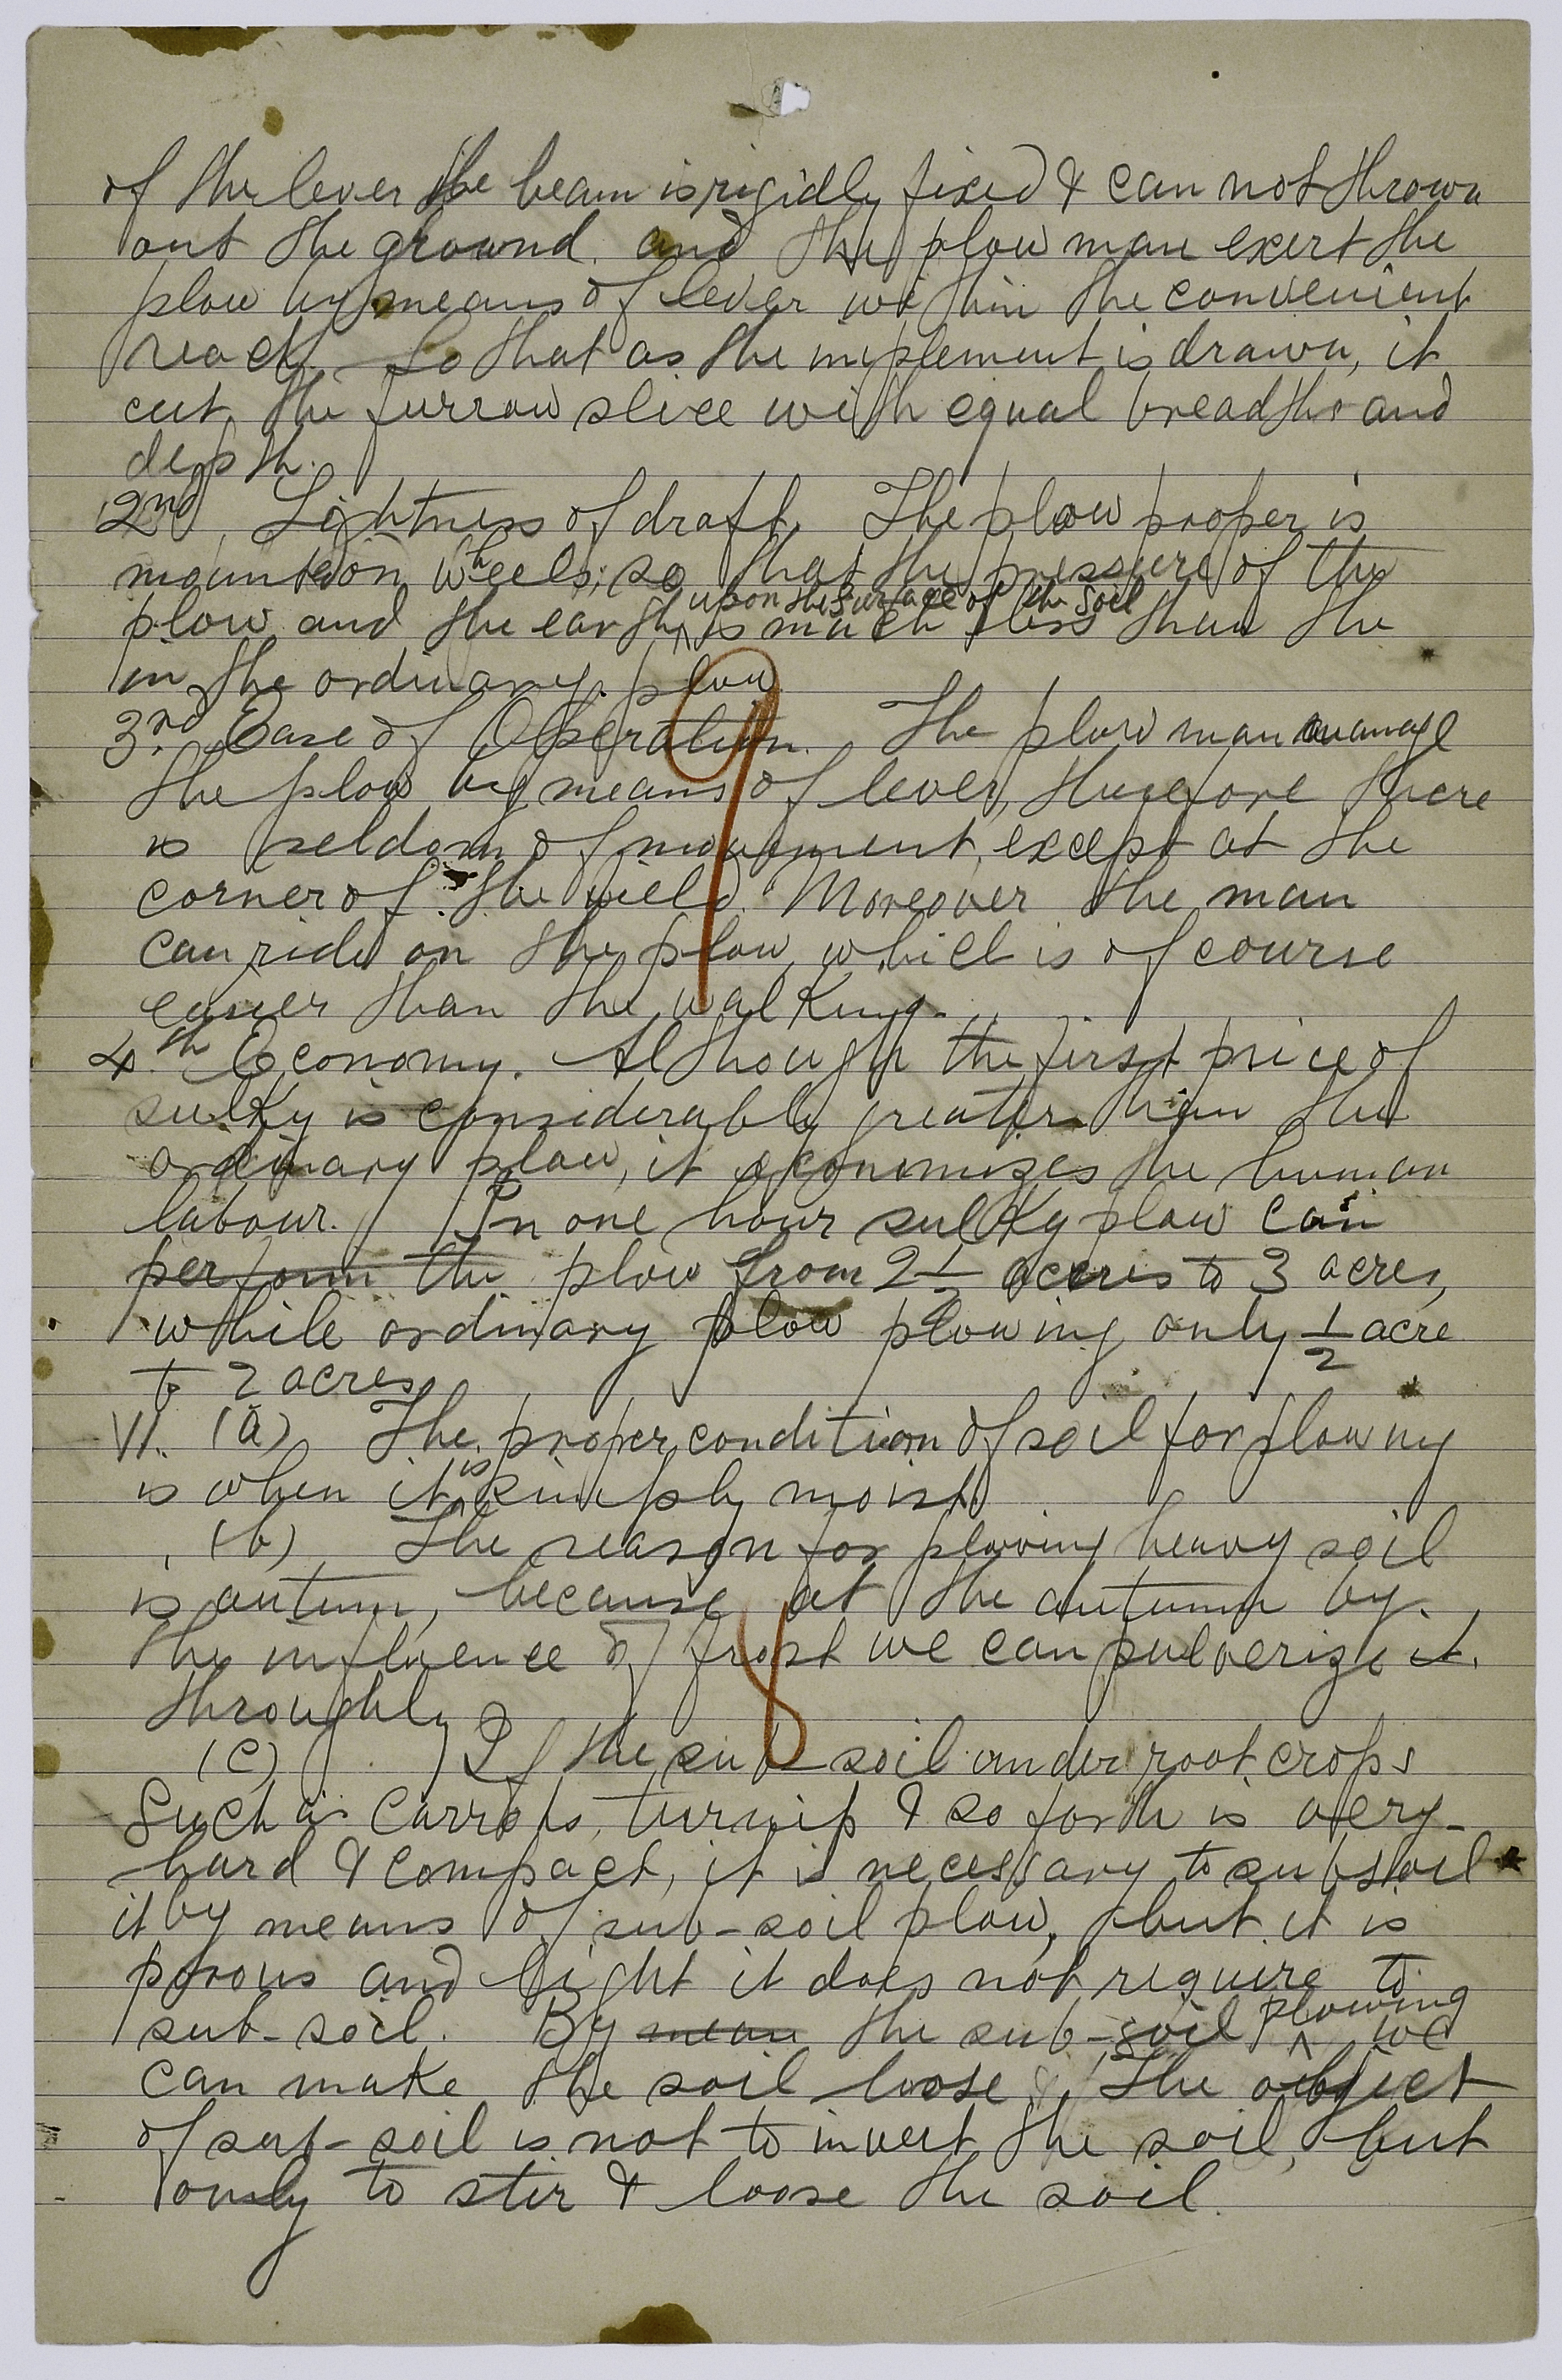 of the lever the beam is rigidly fixed & can not thrown
out the ground. and the plow man exert the
plow by means of lever within the convenient
reach. So that as the implement is drawn, it
cut the furrow slice with equal breadths and
depth.
2nd, Lightness of draft. The plow proper is
mounted on wheels, so that the pressure of the
plow and the earth upon the surface of the soil is much less than the
in the ordinary plow.
3rd Ease of Operation. The plow man manage
the plow by means of lever, therefore there
is seldom of movement, except at the
corner of the field. Moreover the man
can ride on the plow, which is of course
easier than the walking.
9
4th Economy. Although the first price of
sulky is considerably greater than the
ordinary plow, it economizes the human
labour. In one hour sulky plow can
perform the plow from 2 1/2 acres to 3 acres,
while ordinary plow plowing only 1/2 acre
to 2 acres.
VI. (a) The proper condition of soil for plowing
is when it is simply moist.
(b) The reason for plowing heavy soil
is autumn, because at the autumn by
the influence of frost we can pulverize it
throughly
8
(c) If the sub-soil under root crops
Such as Carrots, turnip & so forth is very
hard & compact, it is necessary to subsoil
it by means of sub-soil plow, but it is
porous and light it does not require to
sub-soil. By mean the sub-soil plowing we
can make the soil loose. The object
of sub-soil is not to invert the soil, but
only to stir & loose the soil.